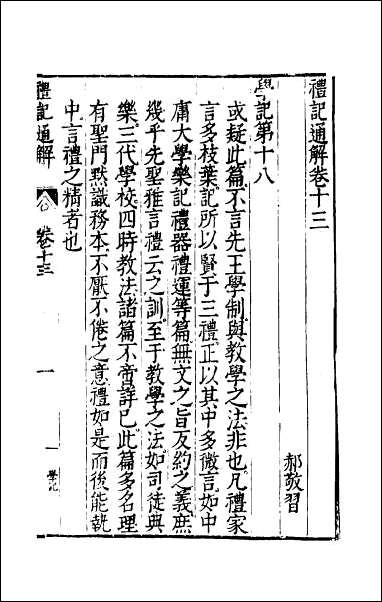 禮記通解卷十三
郝敬習
學記第十八
或疑此篇不言先王學制與教學之法非也凡禮家
言多枝葉記所以賢于三禮正以其中多微言如中
庸大學樂記禮器禮運等篇無文之旨反約之義庶
幾乎先聖雅言禮云之訓至于教學之法如司徒典
樂三代學校四時教法諸篇不啻詳已此篇多名理
有聖門默識務本不厭不倦之意禮如是而後能執
中言禮之精者也
禮記通解 卷十三 一 學記